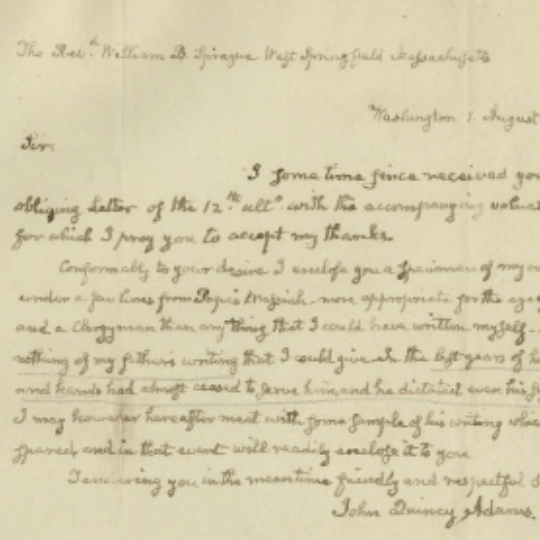 The Rev.d William B. Sprague West Springfield Massachusetts
Washington 1 August
Sir.
I some time since received you
obliging Letter of the 12.th ulto with the accompanying valua
for which I pray you to accept my thanks.
Conformably to your desire I enclose you a specimen of my ow
under a few lines from Pope's Messiah more appropriate for the eye
and a Clergyman than any thing that I could have written myself
nothing of my father's writing that I could give. In the last years of h
and hands had almost ceased to serve him, and he dictated even his
I may however hereafter meet with some sample of his writing whic
spared, and in that event will readily enclose it to you
I am in the mean time friendly and respectful
John Quincy Adams.